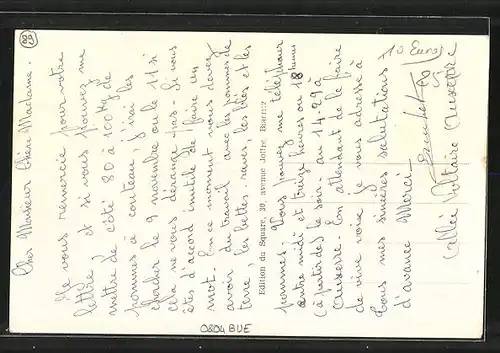 Cher Monsieur Chère Madame.
Je vous remercie pour votre
lettre, et si vous pouvez me
mettre de côté 80 à 100 kg de
pommes à couteau, j'irai les
chercher le 9 novembre ou le 11 si
cela ne vous dérange pas - Si vous
êtes d'accord inutile de faire un
mot. En ce moment vous devez
avoir du travail avec les pommes de
terre, les bettes. raves, les blés et les
Edition du Square, 30, avenue Joffre
pommes. Vous pouvez me téléphoner
entre midi et treize heures ou 18 heures
(à partir de) le soir au 14-29 à
Auxerre. En attendant de le faire
de vive voix je vous adresse à
tous mes sincères salutations
d'avance Merci
10 Euros
Allée Voltaire Auxerre
0804 BUE